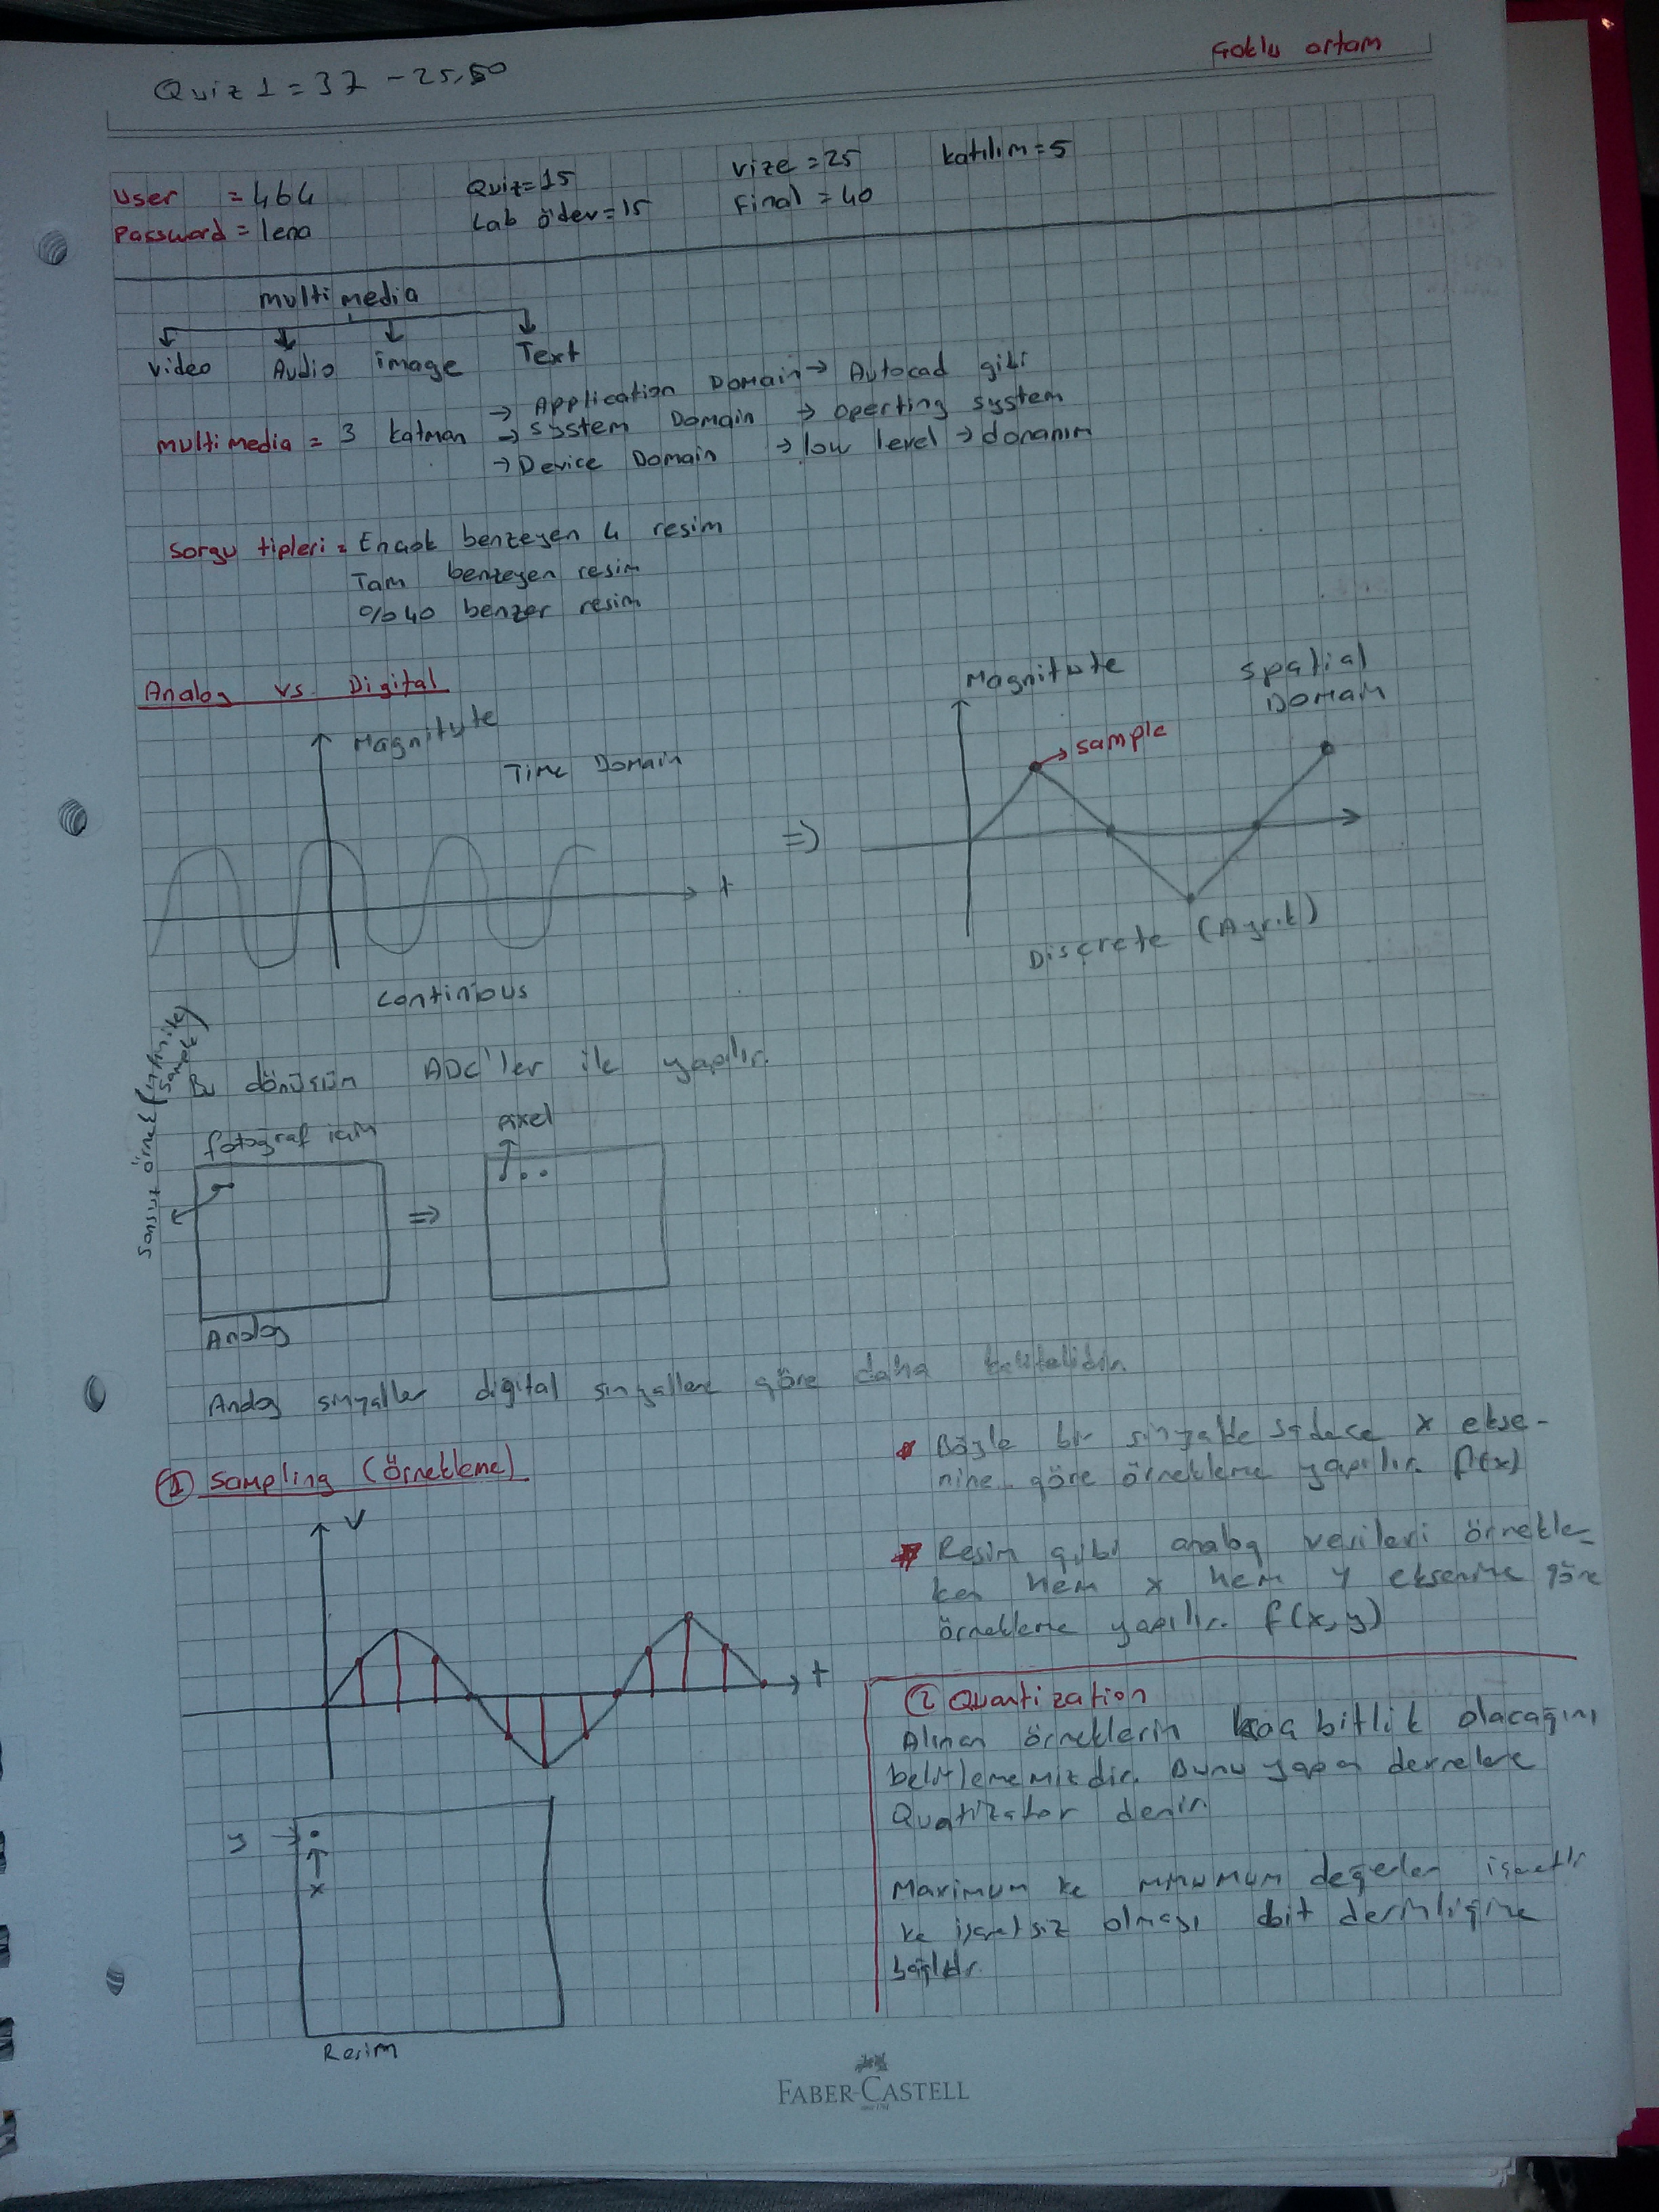 Çoklu ortam
Quiz 1 = 37 - 25,50
User = 464
Password = lena
Quiz = 15
Lab ödev = 15
Vize = 25
Final = 40
Katılım = 5
multimedia
Video Audio image Text
multimedia = 3 katman
→ Application Domain → Autocad gibi
→ System Domain → Operting system
→ Device Domain → low level → donanım
Sorgu tipleri = Ençok benzeyen 4 resim
Tam benzeyen resim
%40 benzer resim
Analog vs. Digital
Magnitute
Time Domain
t
Continious
⇒
Magnitute
Spatial
Domain
→ sample
Discrete (Ayrık)
Bu dönüşüm ADC'ler ile yapılır.
Sonsuz örnek (infinite
sample)
fotoğraf için
Analog
⇒
pixel
Analog sinyaller digital sinyallere göre daha kalitelidir.
① Sampling (Örnekleme)
V
t
y →
x
Resim
Böyle bir sinyalde sadece x ekse-
nine göre örnekleme yapılır. f(x)
Resim gibi analog verileri örnekle-
ken hem x hem y eksenine göre
örnekleme yapılır. f(x,y)
② Quantization
Alınan örneklerin kaç bitlik olacağını
belirlememizdir. Bunu yapan
Quatizator denir.
Maximum ve minumum değerler işaretli
ve işaretsiz olması bit derinliğine
bağlıdır.
FABER-CASTELL
since 1761